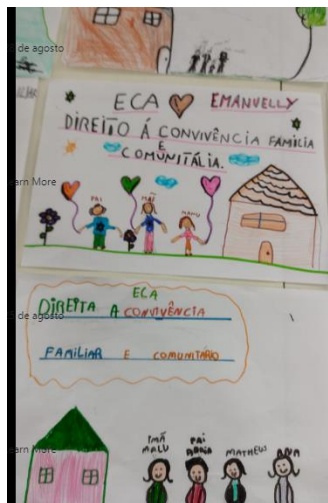 5 de agosto
ECA EMANUELLY
DIREITO Á CONVIVÊNCIA FAMILIA
E
COMUNITÁLIA.
arn More
PAI
MÃE
MANU
ECA
DIREITA A CONVIVÊNCIA
5 de agosto
FAMILIAR E COMUNITÁRIO
arn More
IMÃ
MALU
PAI
MATHEUS
ANA